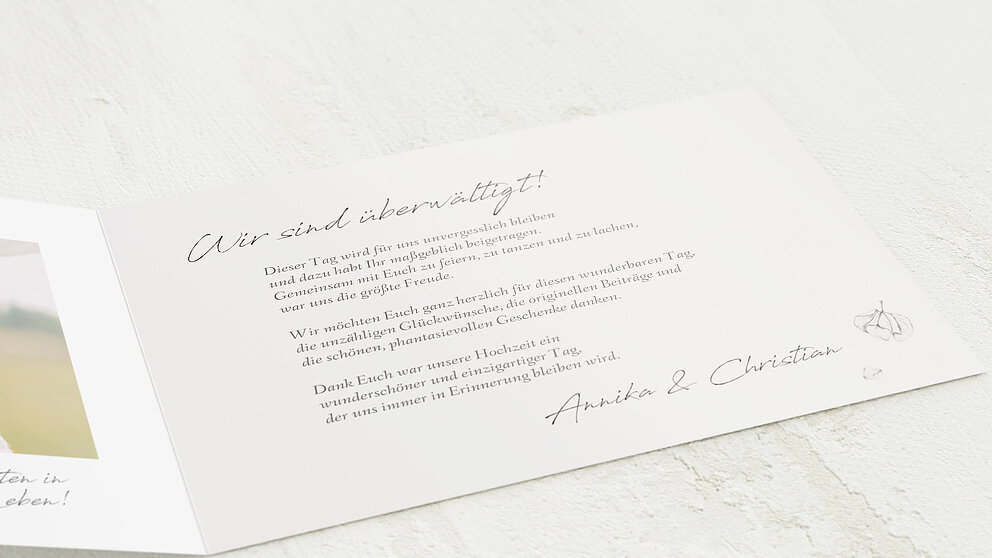 Wir sind überwältigt!
Dieser Tag wird für uns unvergesslich bleiben
und dazu habt Ihr maßgeblich beigetragen.
Gemeinsam mit Euch zu feiern, zu tanzen und zu lachen,
war uns die größte Freude.
Wir möchten Euch ganz herzlich für diesen wunderbaren Tag,
die unzähligen Glückwünsche, die originellen Beiträge und
die schönen, phantasievollen Geschenke danken.
Dank Euch war unsere Hochzeit ein
wunderschöner und einzigartiger Tag,
der uns immer in Erinnerung bleiben wird.
Annika & Christian
in